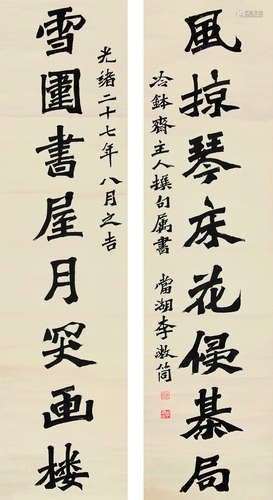 風掠琴床花侵棊局
冷鉢齋主人撰句属書 當湖李漱筒
雪圍書屋月突画楼
光緒二十七年八月之吉